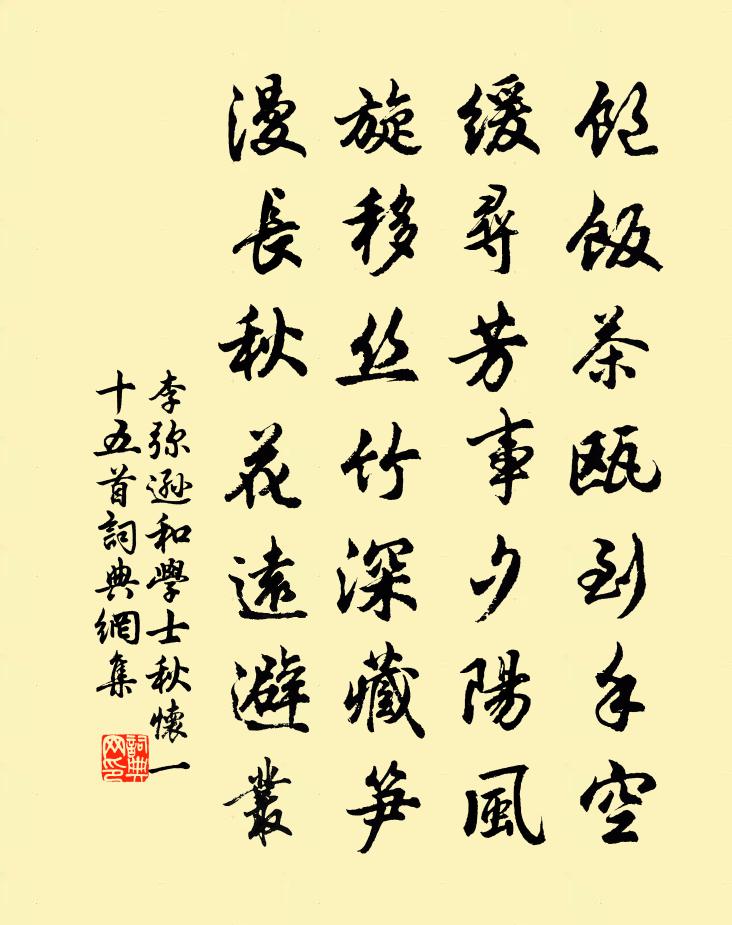 飽飯茶甌到手空
緩尋芳事夕陽風
旋移丝竹深藏笋
漫長秋花遠避叢
李弥遜和學士秋懷一
十五首詞典網集
詞典
网印